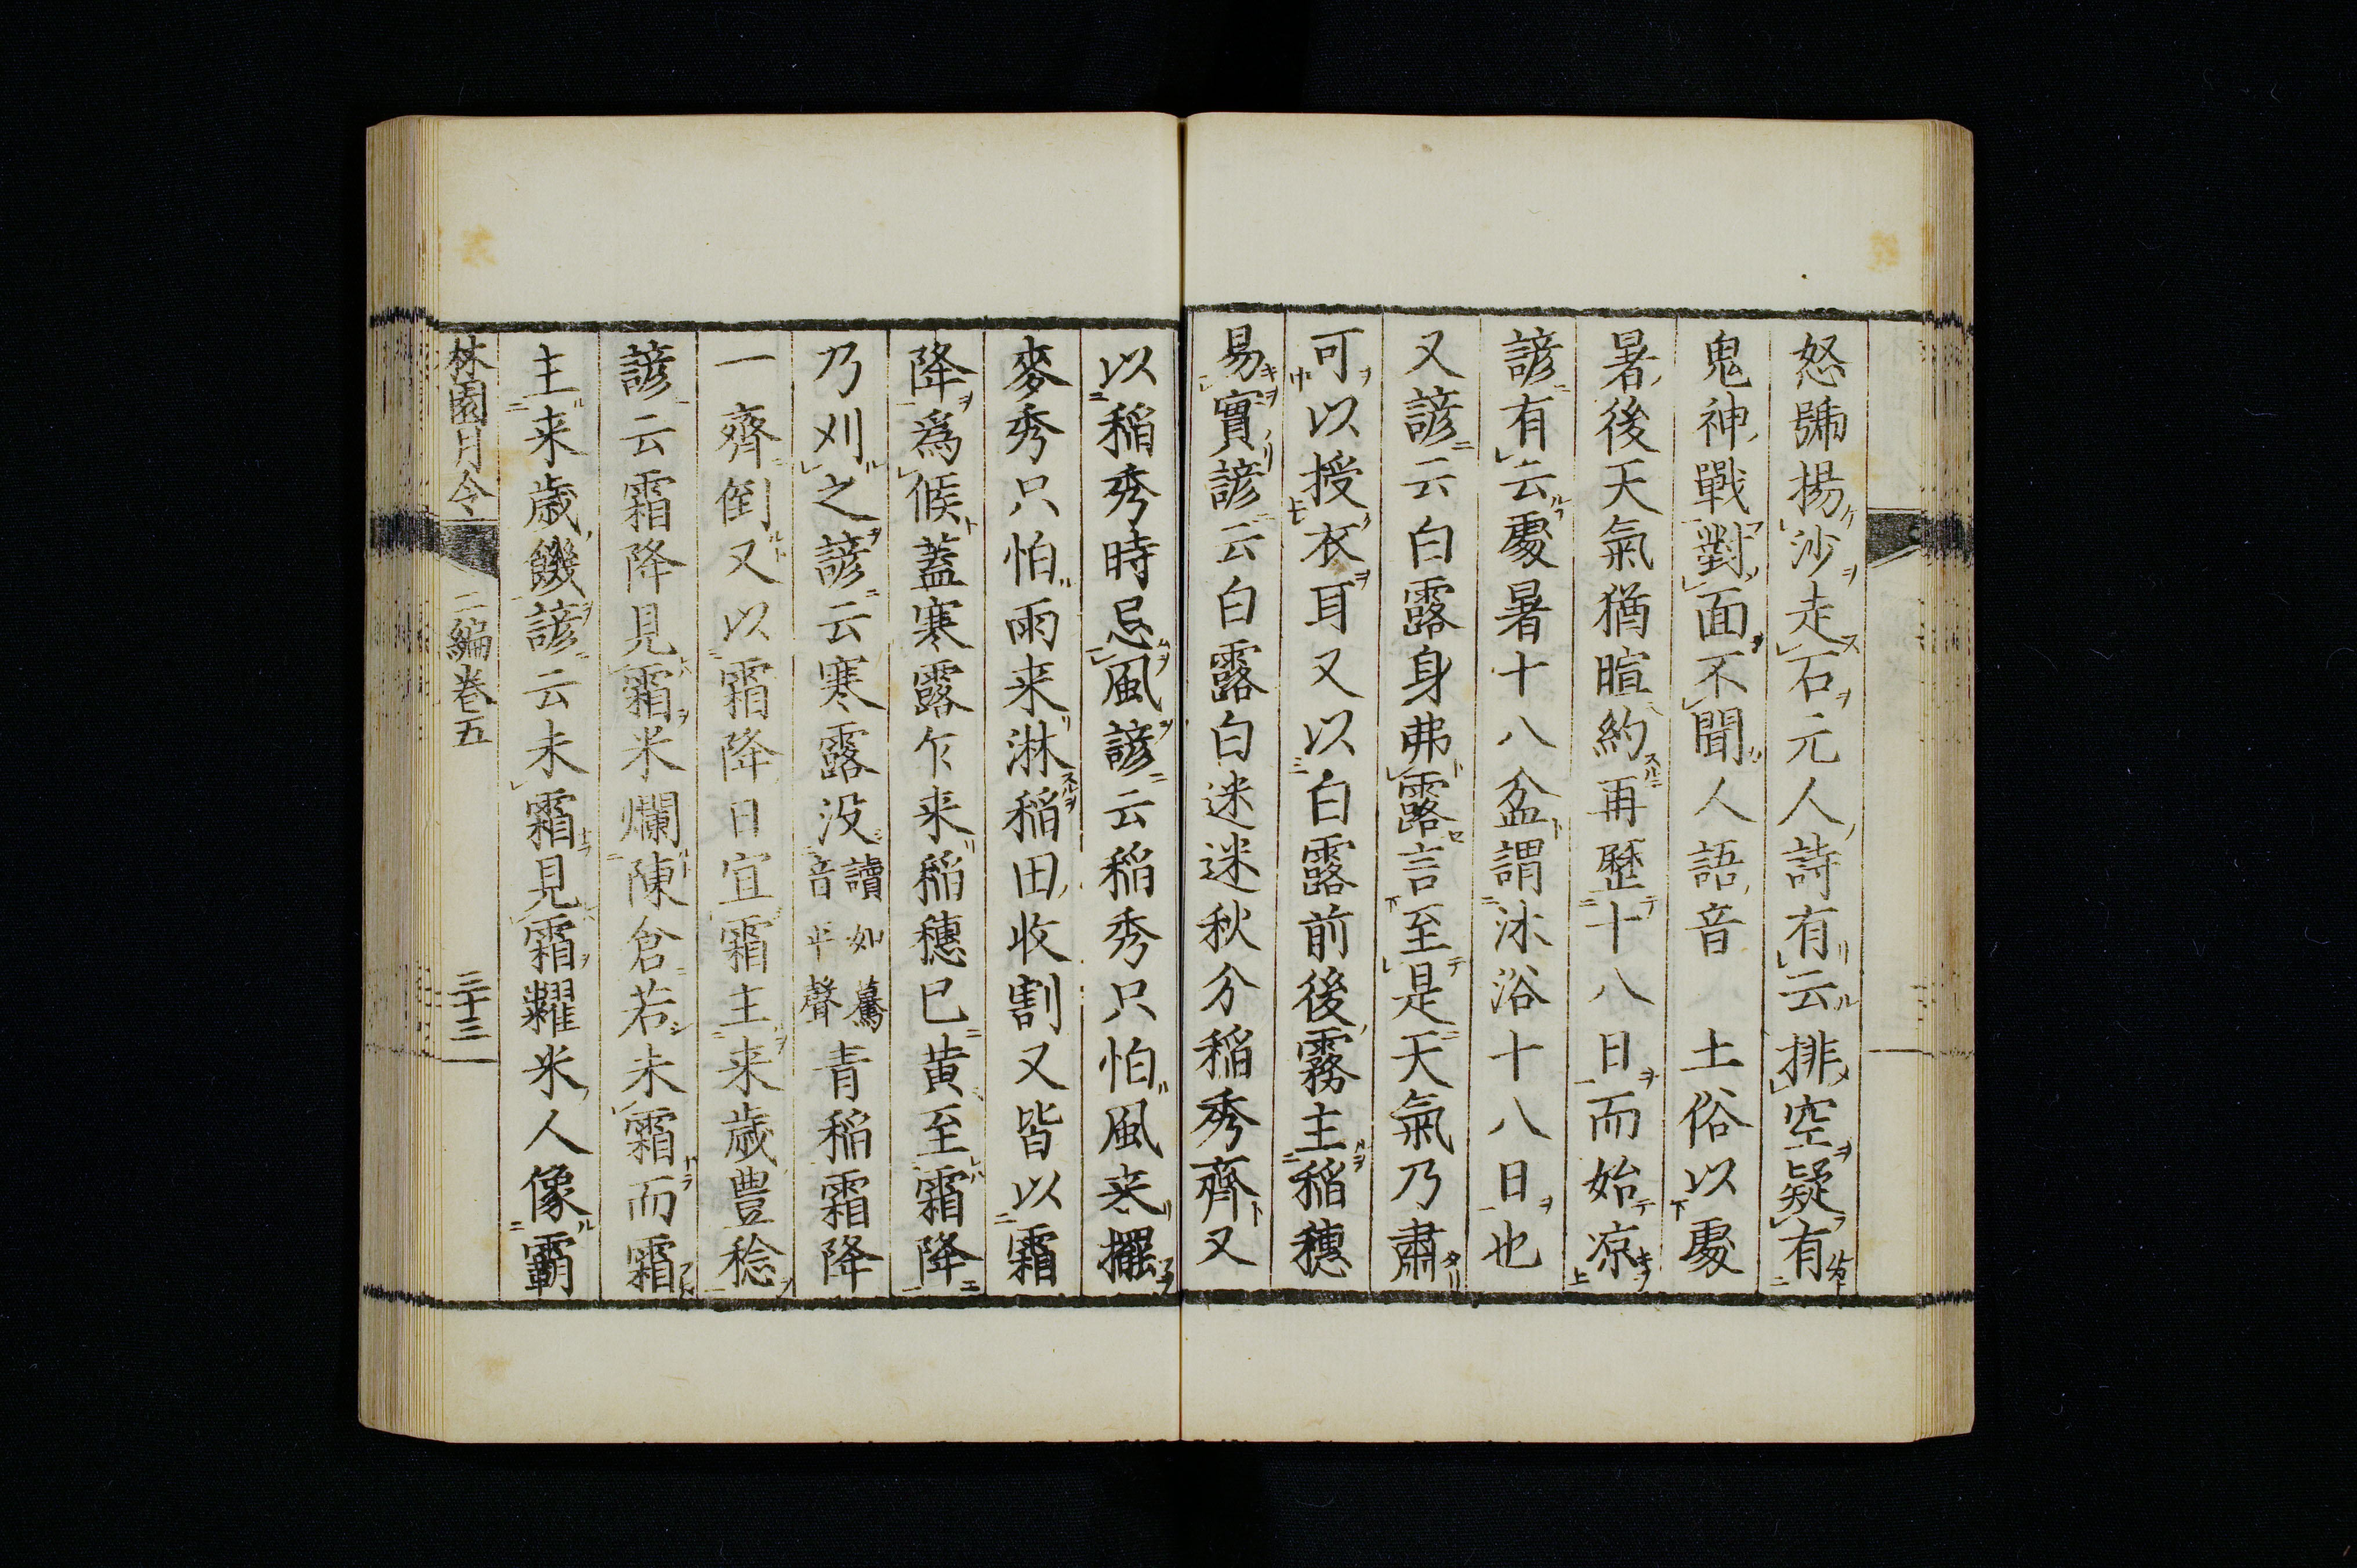 怒號揚沙走石元人詩有云排空疑有
鬼神戰對面不聞人語音　土俗以處
暑後天氣猶暄約再歷十八日而始凉
諺有云處暑十八盆謂沐浴十八日也
又諺云白露身弗露言至是天氣乃肅
可以授衣耳又以白露前後霧主稲穂
易實諺云白露白迷迷秋分稲秀齊又
以稲秀時忌風諺云稲秀只怕風来擺
麥秀只怕雨来淋稲田收割又皆以霜
降爲候蓋寒露乍来稲穂已黄至霜降
乃刈之諺云寒露没讀如驀音平聲青稲霜降
一齊倒又以霜降日宜霜主来歲豊稔
諺云霜降見霜米爛陳倉若未霜而霜
主来歲饑諺云未霜見霜糶米人像霸
林園月令　二編卷五　三十三